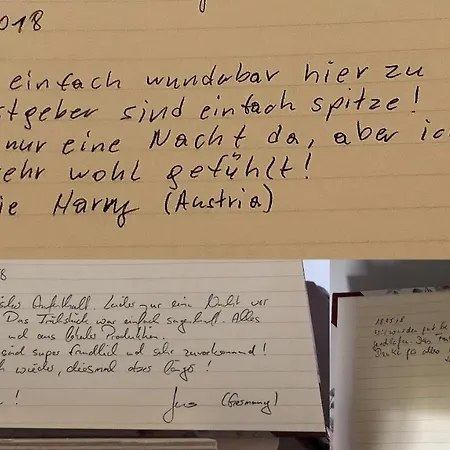 2018
einfach wunderbar hier zu
stgeber sind einfach spitze!
nur eine Nacht da, aber ic
sehr wohl gefühlt!
ie Harry (Austria)
8
Aufenthalt. Leider nur eine Nacht wer
Das Frühstück war einfach sagenhaft. Alles
und aus lokaler Produktion.
sind super freundlich und sehr zuvorkommend!
wieder, diesmal aber länger!
!
(Germany)
gut
Das
Danke für alles